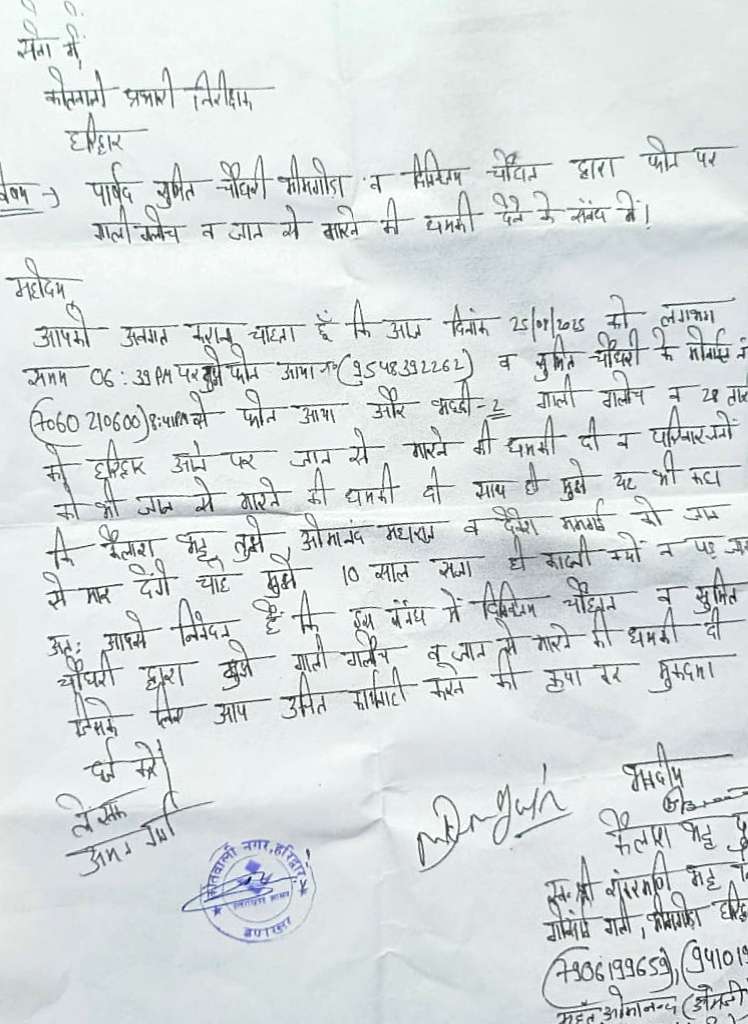 सेवा में,
कोतवाली प्रभारी निरीक्षक
हरिद्वार
पार्षद सुमित चौधरी भीमगोडा व चौहान द्वारा फोन पर
गाली गलौच व जान से मारने की धमकी देने के संबंध में।
महोदय,
आपको अवगत कराना चाहता हूँ कि आज दिनांक 25/ /2025 को लगभग
समय 06:39 PM पर मुझे फोन आया नं० (9548392262) व सुमित चौधरी के
(7060210600) 8:41PM से फोन आया और भद्दी-2 गाली गलौच व 28
को हरिद्वार आने पर जान से मारने की धमकी दी व परिवारजनों
को भी जान से मारने की धमकी दी साथ ही मुझे यह भी कहा
कि कैलाश भट्ट तुझे, ओमानंद महाराज व को जान
से मार देंगे चाहे मुझे 10 साल सजा ही काटनी क्यों न पड़
अतः आपसे निवेदन है कि इस संबंध में चौहान व सुमित
चौधरी द्वारा मुझे गाली गलौच व जान से मारने की धमकी दी
जिसके लिए आप उचित कार्यवाही करने की कृपा कर मुकदमा
दर्ज करें।
लेखक
कोतवाली नगर, हरिद्वार
भवदीय
कैलाश भट्ट
स्व० श्री भट्ट
गली, भीमगोडा
(7906199659),
महंत ओमानन्द